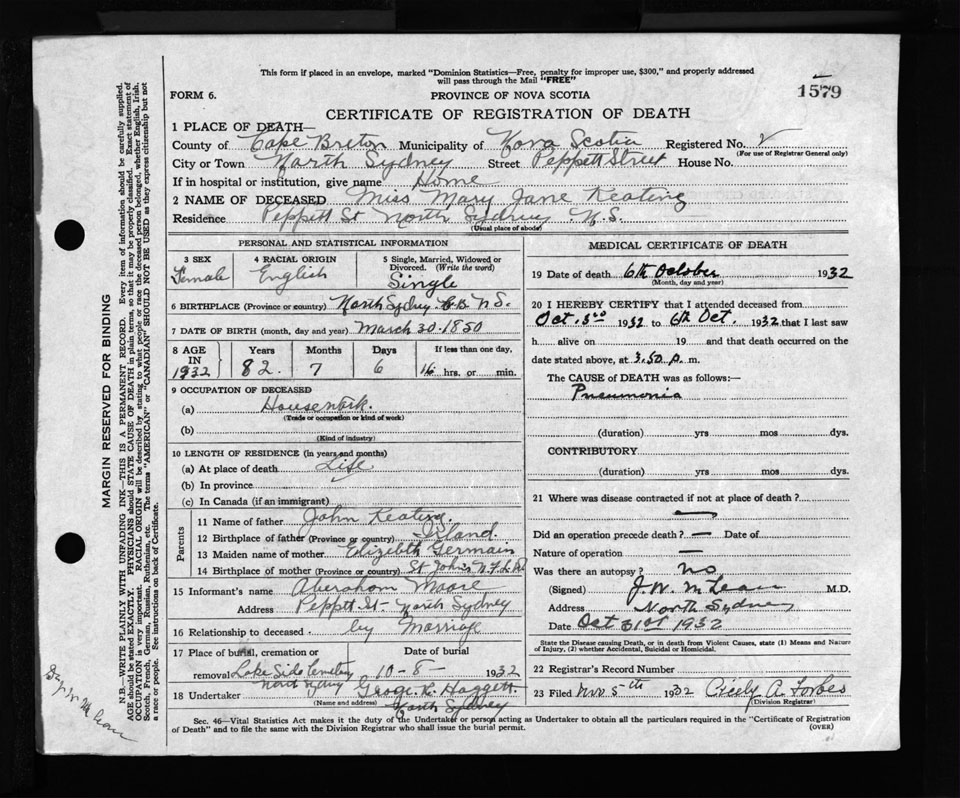 This form if placed in an envelope, marked "Dominion Statistics—Free, penalty for improper use, $300," and properly addressed
will pass through the Mail "FREE"
1579
FORM 6. PROVINCE OF NOVA SCOTIA
CERTIFICATE OF REGISTRATION OF DEATH
1 PLACE OF DEATH—
County of Cape Breton Municipality of Nova Scotia Registered No.
(For use of Registrar General only)
City or Town North Sydney Street Peppett Street House No.
If in hospital or institution, give name Home
2 NAME OF DECEASED Miss Mary Jane Keating
Residence Peppitt St North Sydney N.S.
(Usual place of abode)
PERSONAL AND STATISTICAL INFORMATION
3 SEX Female
4 RACIAL ORIGIN English
5 Single, Married, Widowed or
Divorced. (Write the word)
Single
6 BIRTHPLACE (Province or country) North Sydney C.B. N.S.
7 DATE OF BIRTH (month, day and year) March 30. 1850
8 AGE IN 1932
Years Months Days If less than one day,
82. 7 6 16 hrs. or min.
9 OCCUPATION OF DECEASED
(a) Housework.
(Trade or occupation or kind of work)
(b)
(Kind of industry)
10 LENGTH OF RESIDENCE (in years and months)
(a) At place of death Life
(b) In province
(c) In Canada (if an immigrant)
Parents
11 Name of father John Keating.
12 Birthplace of father (Province or country) Island.
13 Maiden name of mother Elizibeth Germain
14 Birthplace of mother (Province or country) St John's N.F.L.D.
15 Informant's name Abershon Moore
Address Peppitt St- North Sydney
16 Relationship to deceased by Marriage
17 Place of burial, cremation or Date of burial
removal Lake Side Cemetery 10-8- 1932
North Sydney
18 Undertaker George R. Haggett.
(Name and address) North Sydney
MEDICAL CERTIFICATE OF DEATH
19 Date of death 6th October 1932
(Month, day and year)
20 I HEREBY CERTIFY that I attended deceased from
Oct. 3rd 1932 to 6th Oct. 1932 that I last saw
h alive on 19 and that death occurred on the
date stated above, at 3.50 p. m.
The CAUSE of DEATH was as follows:—
Pneumonia
(duration) yrs mos dys.
CONTRIBUTORY
(duration) yrs mos dys.
21 Where was disease contracted if not at place of death?
—
Did an operation precede death? — Date of
Nature of operation —
Was there an autopsy? no
(Signed) J.W. McLean M.D.
Address North Sydney
Date Oct 31st 1932
State the Disease causing Death, or in death from Violent Causes, state (1) Means and Nature
of Injury, (2) whether Accidental, Suicidal or Homicidal.
22 Registrar's Record Number
23 Filed Nov 5th 1932 Cicely A. Forbes
(Division Registrar)
Sec. 46—Vital Statistics Act makes it the duty of the Undertaker or person acting as Undertaker to obtain all the particulars required in the "Certificate of Registration
of Death" and to file the same with the Division Registrar who shall issue the burial permit.
(OVER)
MARGIN RESERVED FOR BINDING
N.B.—WRITE PLAINLY WITH UNFADING INK—THIS IS A PERMANENT RECORD. Every item of information should be carefully supplied.
AGE should be stated EXACTLY. PHYSICIANS should STATE CAUSE OF DEATH in plain terms, so that it may be properly classified. Exact statement of
OCCUPATION is very important. RACIAL ORIGIN will be described by stating to what people or race the deceased person belonged, whether English, Irish,
Scotch, French, German, Russian, Ruthenian, etc. The terms "AMERICAN" or "CANADIAN" SHOULD NOT BE USED as they express citizenship but not
a race or people. See instructions on back of Certificate.